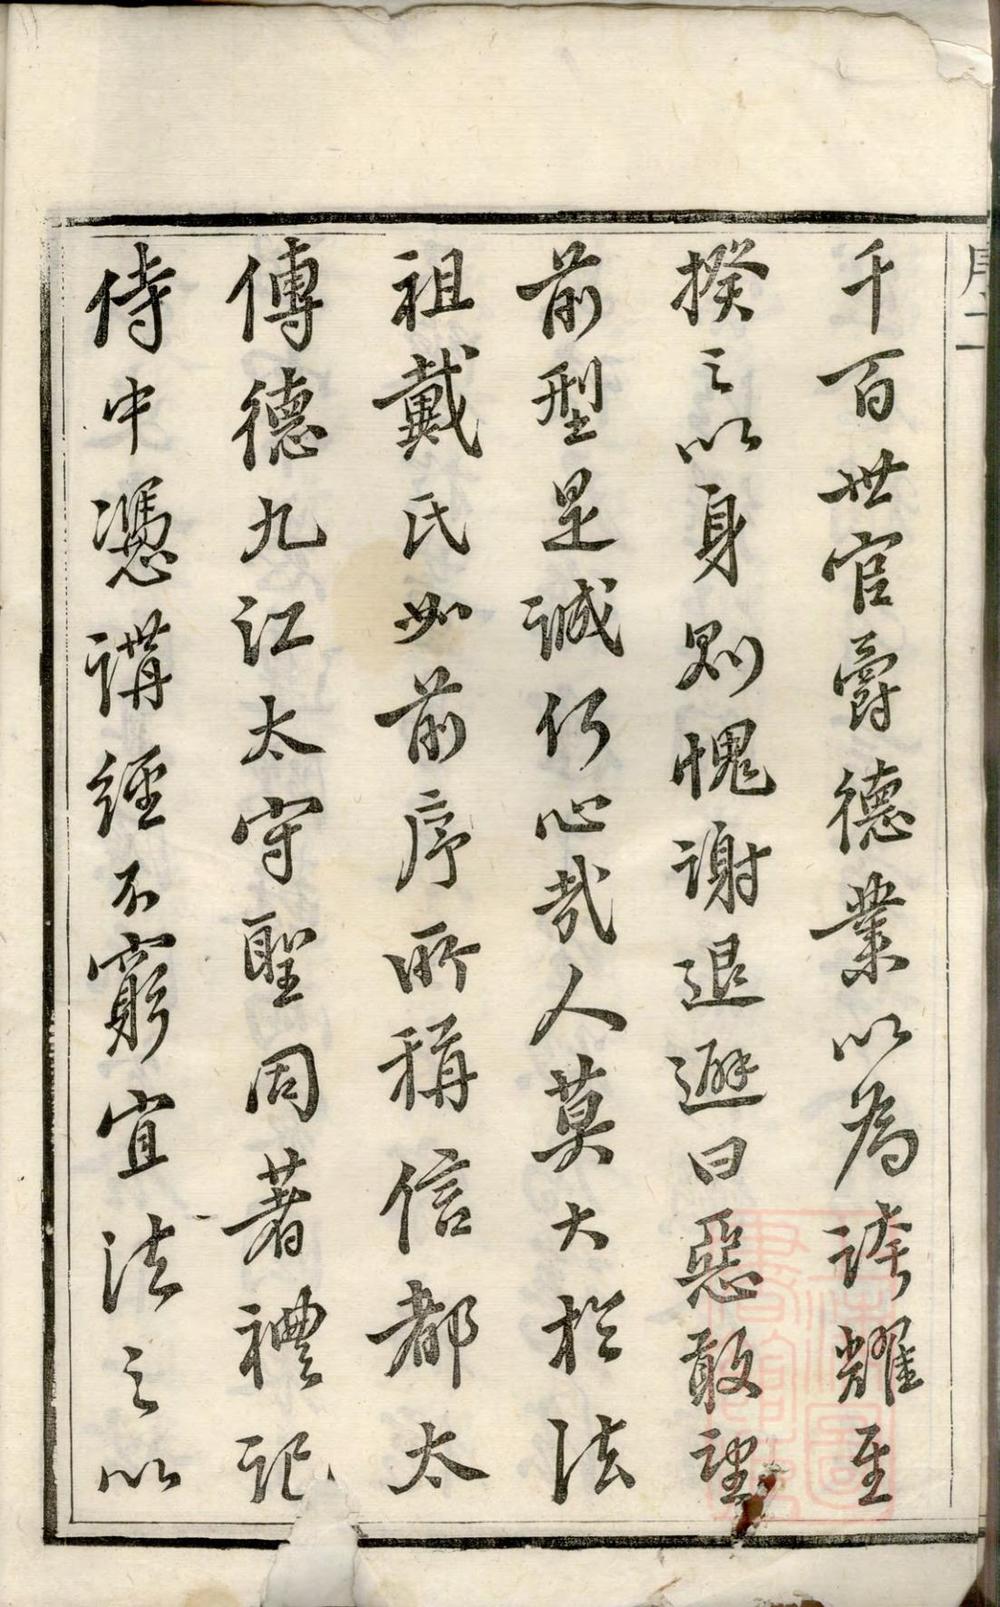 千百世官爵德業以為誇耀至
揆之以身則愧謝退避曰惡敢望
前型是誠何心哉人莫大於法
祖戴氏如前序所稱信都太
傅德九江太守聖周著禮記
侍中憑講經不窮宜法之以
序二